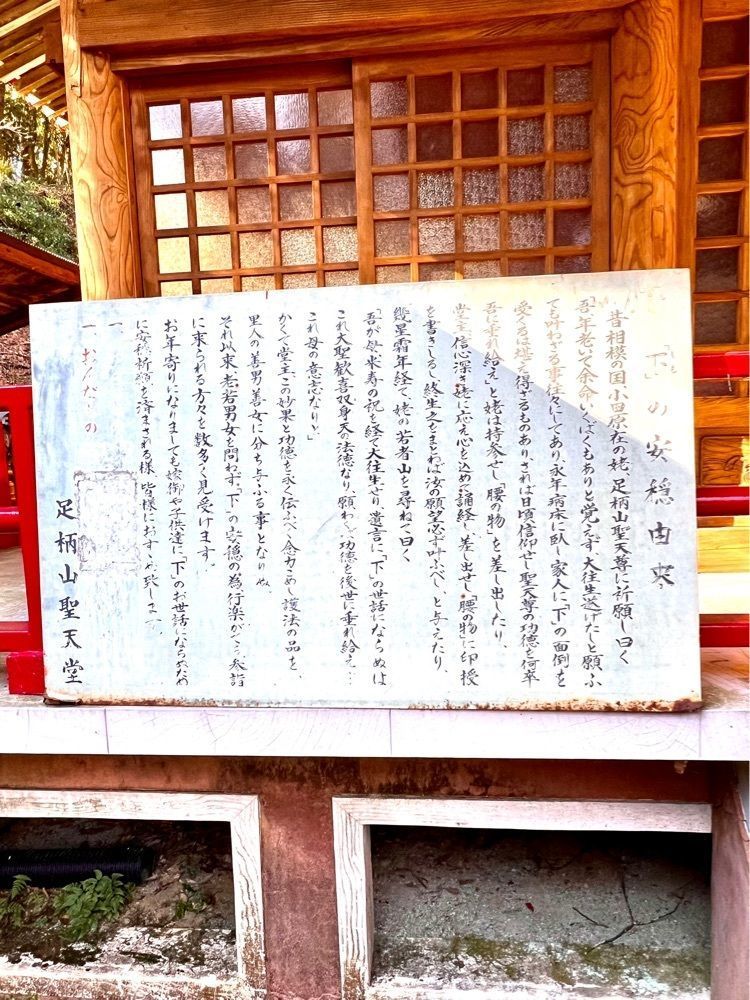 「下」の安穏由来
昔相模の国小田原在の姥、足柄山聖天尊に祈願し曰く
「吾年老いて余命いくばくもありと覚えず、大往生遂げたしと願ふ
ても叶わざる事往々にしてあり、永年病床に臥し家人に「下」の面倒を
受くるは堪え得ざるものあり、されば日頃信仰せし聖天尊の功徳を何卒
吾に垂れ給え」と姥は持参せし「腰の物」を差し出したり、
堂主、信心深き姥に応え心を込めて誦経し差し出せし「腰の物」に印授
を書きしるし、終生入をまとわば汝の願望必ず叶ふべし、と与えたり、
幾星霜年経て、姥の若者山を尋ねて曰く
「吾が母米寿の祝を経て大往生せり、遺言に「下」の世話にならぬは
これ大聖歓喜双身天の法徳なり、願わくは功徳を後世に垂れ給え…
これ母の意志なりと」
かくて堂主、この妙果と功徳を永く伝ふべく念力こめし護法の品を、
里人の善男善女に分ち与ふる事となりぬ
それ以来老若男女を問わず、「下」の安穏の為行楽がてら参詣
に来られる方々を数多く見受けます。
お年寄りになりましても嫁御や子供達に「下」のお世話にならぬため
に安穏祈願を済まされる様皆様におすすめ致します。
一、
一、
足柄山聖天堂